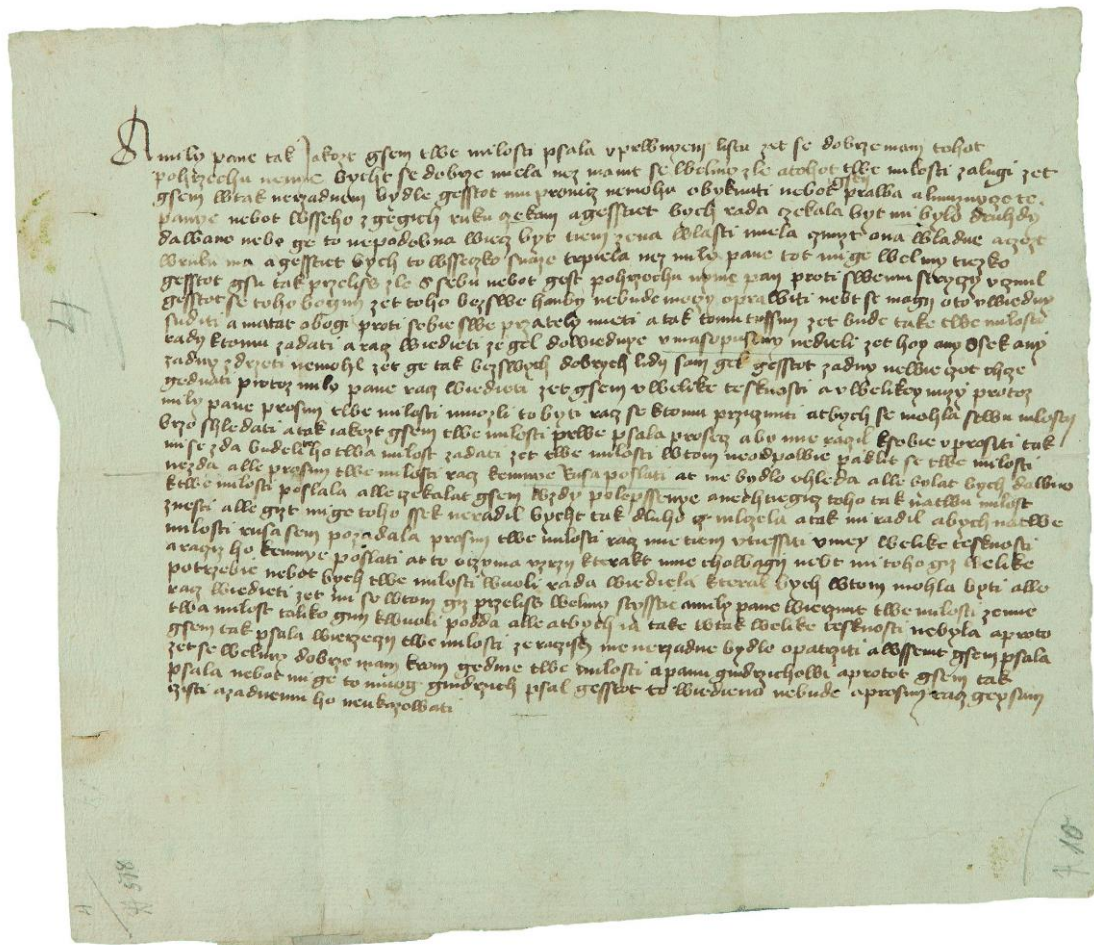 A mily pane tak jakoze gsem twe milosti psala v prwnyem listu zet se dobrze mam tohot
pohrziechu nenie bycht se dobrze miela nez mamt se welmi zle a tohot twe milosti zalugi zet
gsem w tak nerzadnem bydle gesstot mu pro nic nemohu obyknuti nebot gsem prawa almuznycze te
panye nebot wsseho z gegich ruku czekam a gesstiet bych rada czekala byt mi bylo druhdy
dawano nebo ge to nepodobna wiecz byt tiem zena wlasti miela czimzt ona wladne a czozt
w ruku ma a gesstiet bych to wsseczko snaze trpiela nez mily pane tot mi ge welmi tiezko
gesstot gsu tak przelis zle s sebu nebot gest pohrziechu nynie pan proti swemu stryczi vczinil
gesstot se toho bogim zet toho bez swe hanby nebude moczy oprawiti nebt se magi o to w wiedny
suditi a matat oba gi proti sebie swe przately mieti a tak tomu trussim zet bude take twe milosti
rady k tomu zadati a racz wiedieti ze gel do wiednye v masopustny nedieli zet ho any ssek any
zadny zdrzeti nemohl zet ge tak bez swych dobrych lidi sam gel gesstot zadny newie czot chcze
gednati protoz mily pane racz wiedieti zet gsem v welike tesknosti a v welikey nuzy protoz
mily pane prosim twe milosti muozli to byti racz se k tomu przicziniti at bych se mohla s twu milosti
brzo shledati a tak iakozt gsem twe milosti prwe psala prosecz aby mie raczil k sobie vprositi tak
mi se zda budeli ho twa milost zadati zet twe milosti w tom neodpowie paklit se twe milosti
nezda alle prosim twe milosti racz ke mnye Rusa poslati at me bydlo ohleda alle bylat bych dawno
k twe milosti poslala alle czekalat gsem wzdy polepssenye a nechtiegicz toho tak na twu milost
znesti alle gizt mi ge toho ssek neradil bycht tak dluho mlczela a tak mi radil abych na twe
milosti rusa sem pozadala prosim twe milosti racz mie tiem vtiessiti v mey welike tesknosti
a racziz ho ke mnye poslati at to oczima vzrzi kterakt mne chowagi nebt mi toho giz welike
potrzebie nebot bych twe milosti wuoli rada wiediela kterak bych w tom mohla byti alle
racz wiedieti zet mi se w tom giz przelis welmi stysstie a mily pane wierzimt twe milosti ze mie
twa milost taliko gim k wuoli podda alle at bych ia take w tak welike tesknosti nebyla a proto
gsem tak psala wierzeczi twe milosti ze raczis me nerzadne bydlo opatrziti a wssemt gsem psala
zet se welmi dobrze mam krom gedine twe milosti a panu gindrzichowi a protot gsem tak
psala nebot mi ge to muog gindrzich psal gesstot to wiedieno nebude a prosim racz gey sam
czisti a zadnemu ho neukazowati